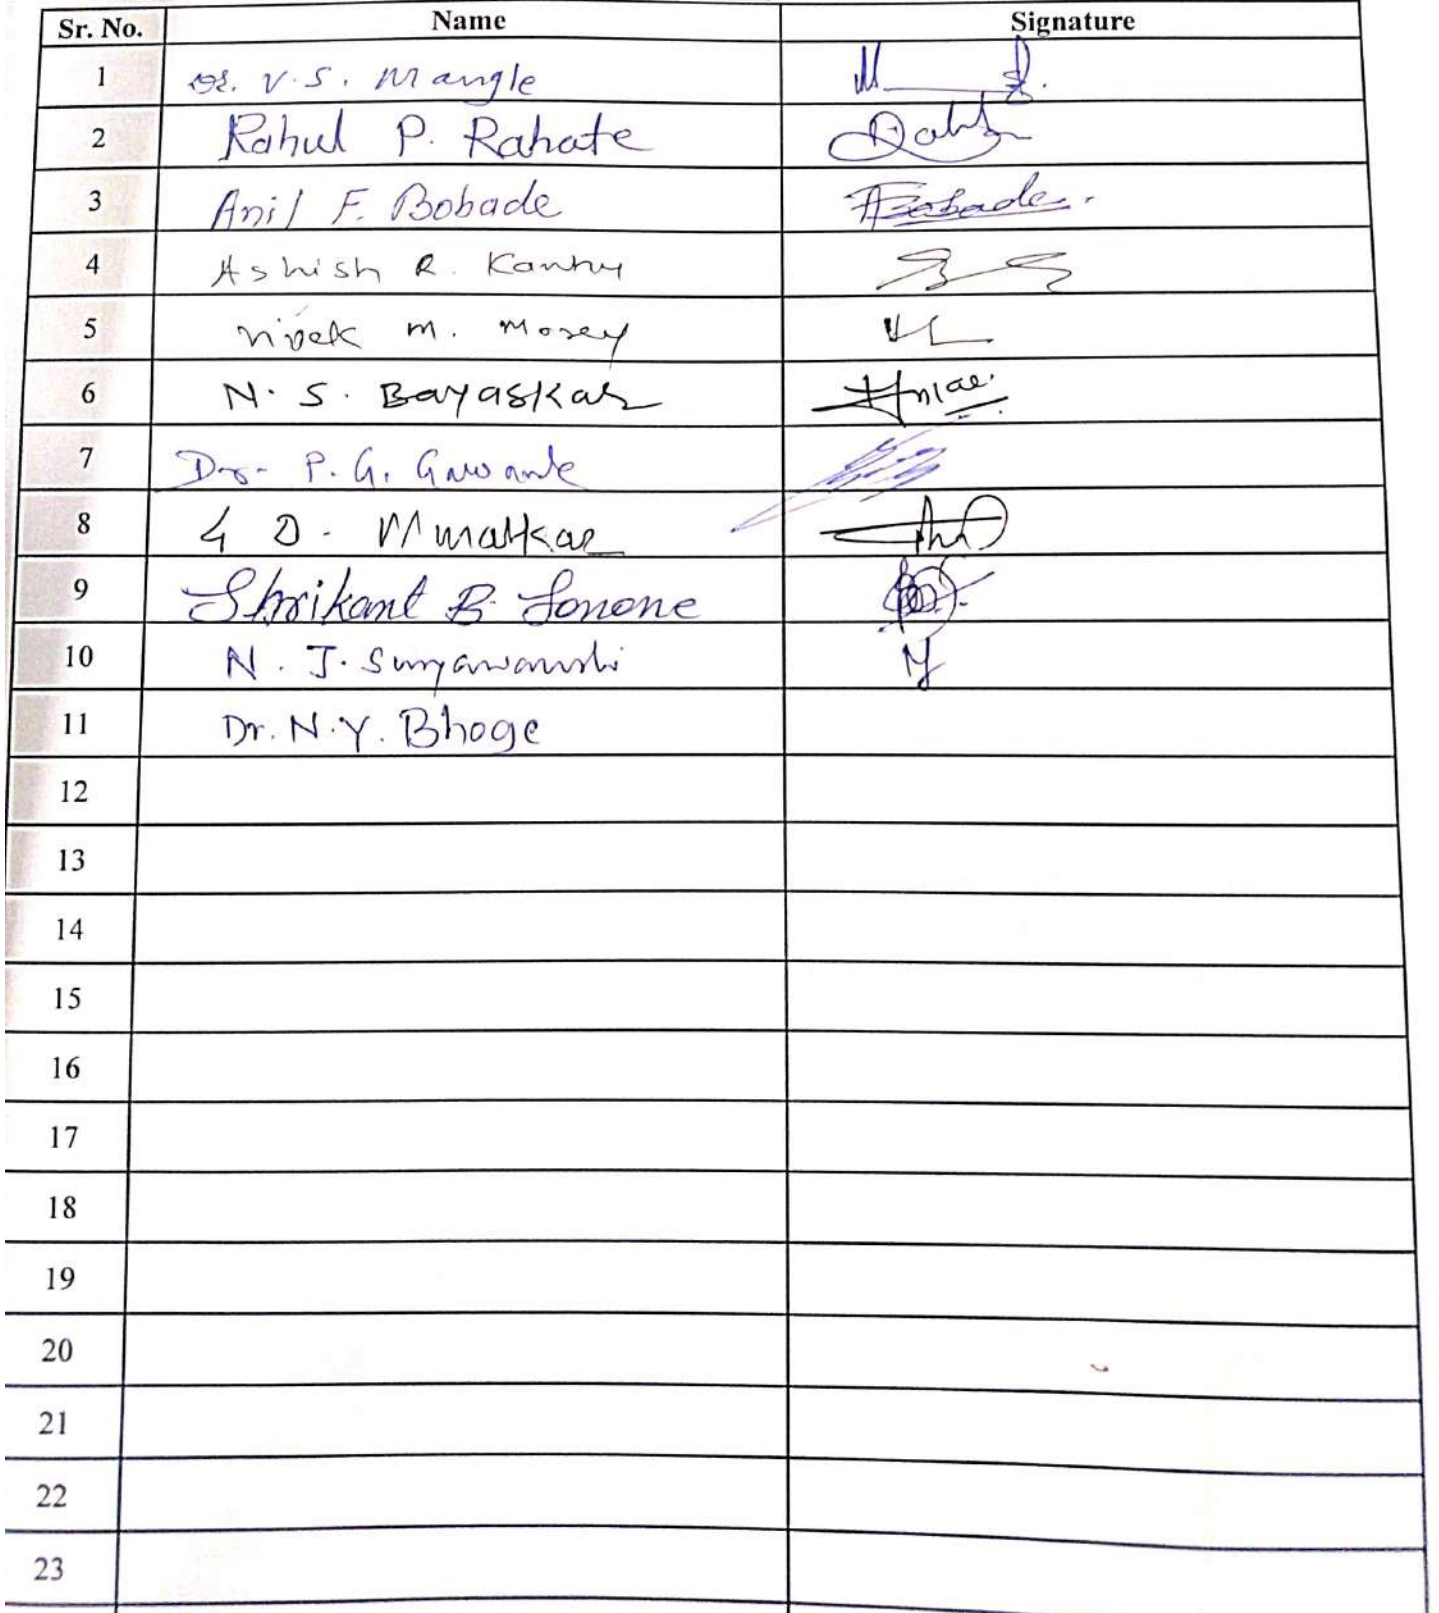 Sr. No. Name Signature
1 Dr. V.S. Mangle
2 Rahul P. Rahate
3 Anil F. Bobade Bobade.
4 Ashish R.
5 M.
6 N. S. Bayaskar
7 Dr. P. G. Gawande
8 D.
9 Shrikant B. Sonone
10 N. J. Suryawanshi
11 Dr. N.Y. Bhoge
12
13
14
15
16
17
18
19
20
21
22
23